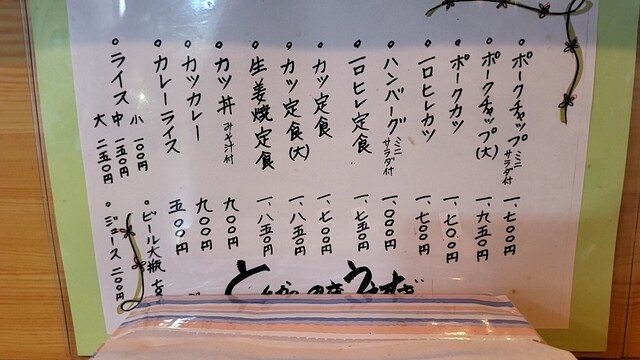 ポークチャップ ミニサラダ付 一、七〇〇円
ポークチャップ(大) 一、九五〇円
ポークカツ 一、七〇〇円
一口ヒレカツ 一、七〇〇円
ハンバーグ ミニサラダ付 一、〇〇〇円
一口ヒレ定食 一、七五〇円
カツ定食 一、七〇〇円
カツ定食(大) 一、八五〇円
生姜焼定食 一、八五〇円
カツ丼 みそ汁付 九〇〇円
カツカレー 九〇〇円
カレーライス 五〇〇円
ライス 小 一〇〇円
中 一五〇円
大 二五〇円
ビール大瓶
ジュース 二〇〇円